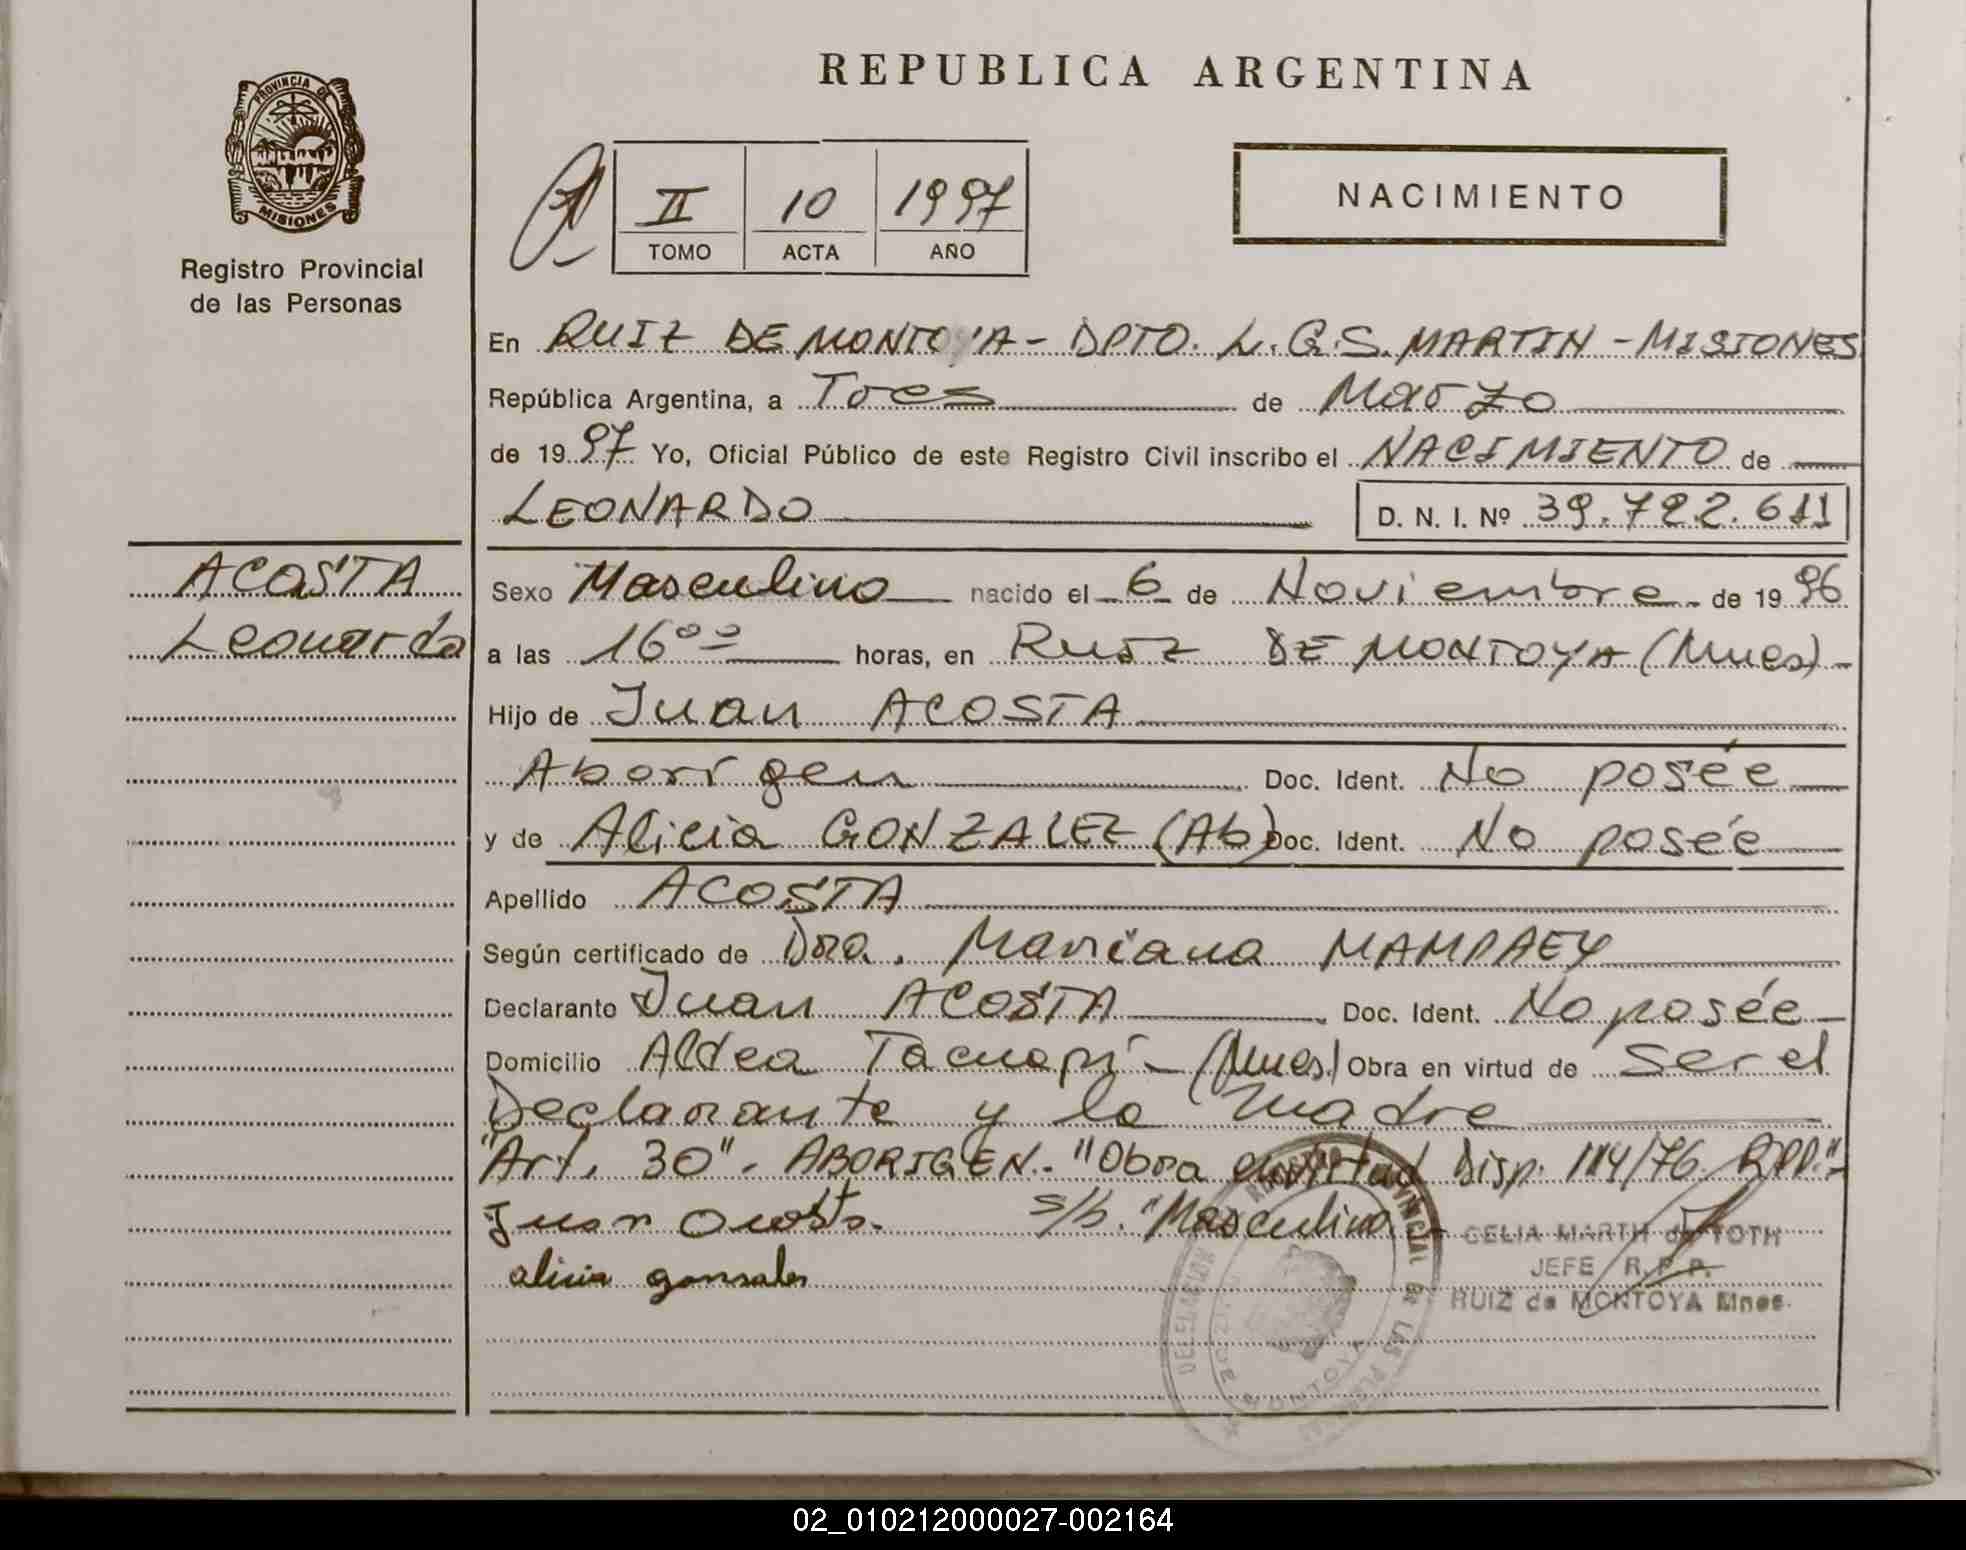 REPUBLICA ARGENTINA
PROVINCIA DE
MISIONES
Registro Provincial
de las Personas
II 10 1997
TOMO ACTA AÑO
NACIMIENTO
En RUIZ DE MONTOYA - DPTO. L.G.S. MARTIN - MISIONES
República Argentina, a Tres de Marzo
de 1997 Yo, Oficial Público de este Registro Civil inscribo el NACIMIENTO de
LEONARDO D. N. I. Nº 39.722.611
ACOSTA
Leonardo
Sexo Masculino nacido el 6 de Noviembre de 1996
a las 16°° horas, en RUIZ DE MONTOYA (Mnes)
Hijo de Juan ACOSTA
Aborigen Doc. Ident. No posée
y de Alicia GONZALEZ (Ab) Doc. Ident. No posée
Apellido ACOSTA
Según certificado de Dra. Mariana MAMPAEY
Declarante Juan ACOSTA Doc. Ident. No posée
Domicilio Aldea Tacuapí - (Mnes) Obra en virtud de ser el
Declarante y la madre
"Art. 30". ABORIGEN. "Obra en virtud Disp. 114/76 RPP."
s/b. "Masculino
alicia gonsales
CELIA MARTH de TOTH
JEFE R.P.P.
RUIZ de MONTOYA Mnes.
02_010212000027-002164